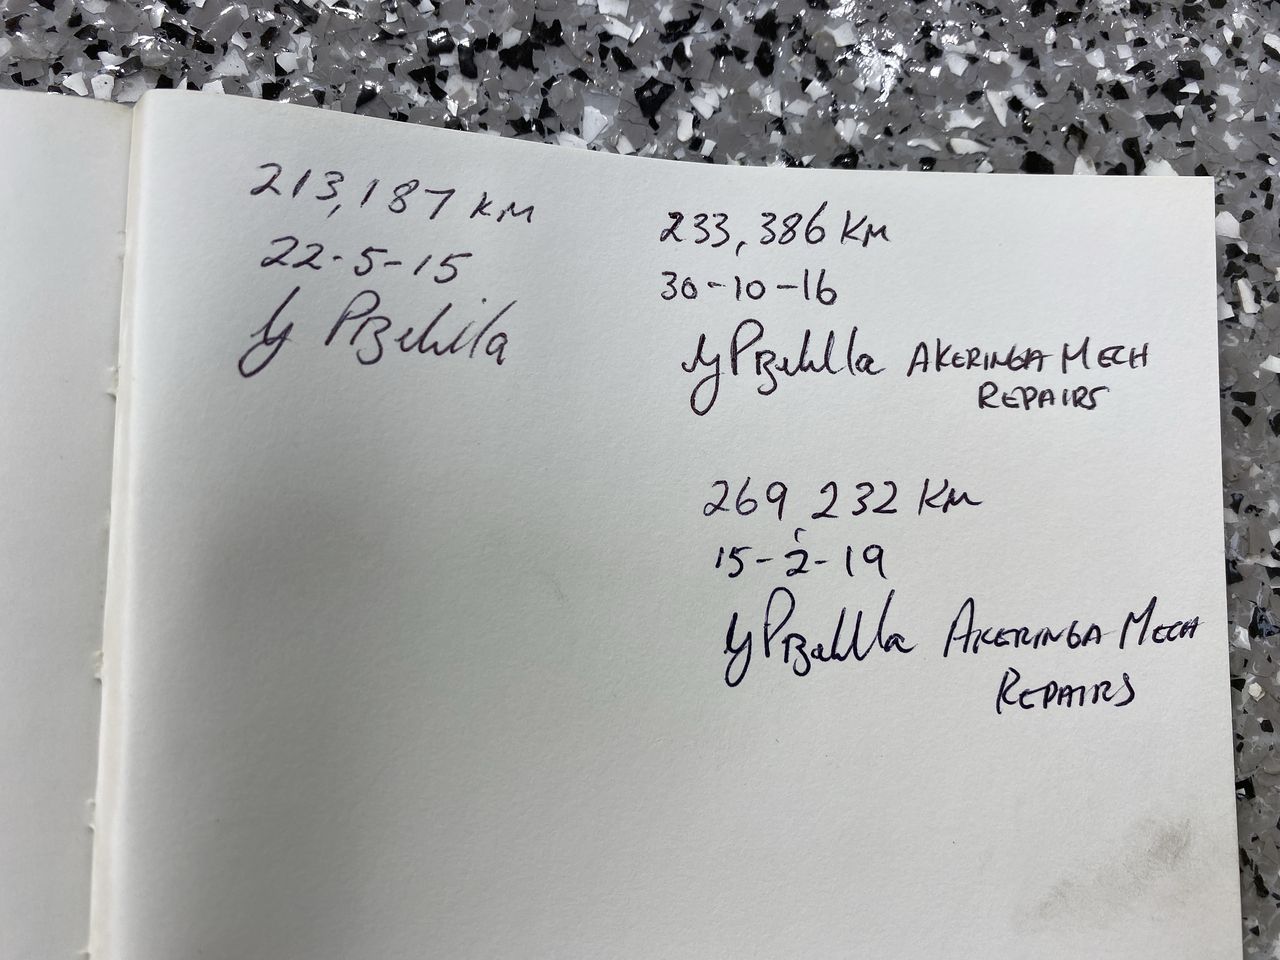 213,187 KM
22-5-15
233,386 KM
30-10-16
AKERINGA MECH
REPAIRS
269,232 KM
15-2-19
AKERINGA MECH
REPAIRS